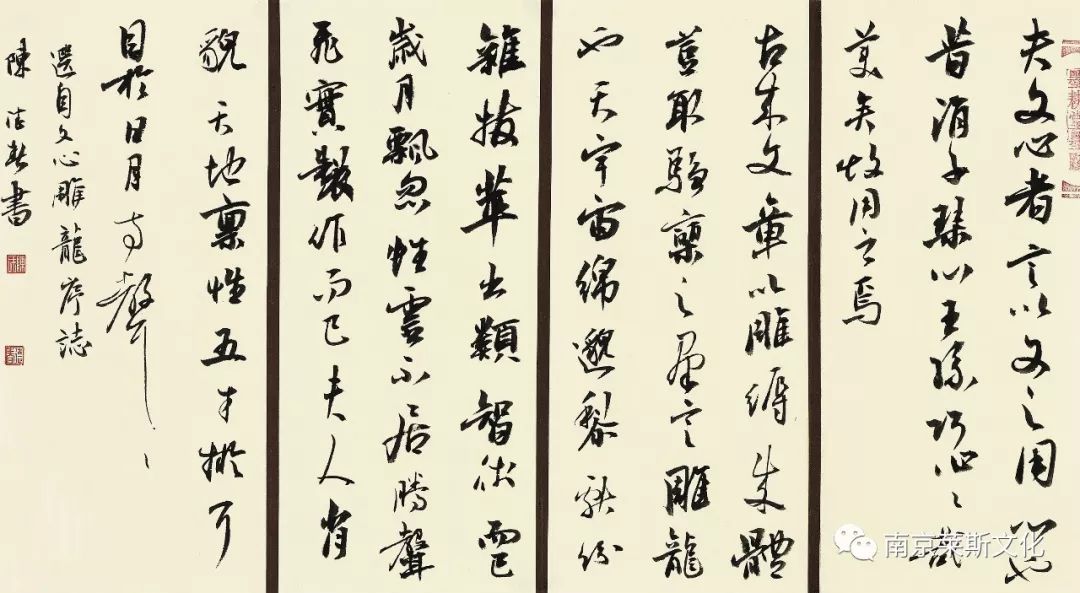 夫文心者言為文之用心也
昔涓子琴心王孫巧心心哉
美矣故用之焉
古來文章以雕縟成體
豈取騶奭之群言雕龍
也夫宇宙綿邈黎獻紛
雜拔萃出類智術而已
歲月飄忽性靈不居騰聲
飛實製作而已夫人肖
貌天地稟性五才擬耳
目於日月方聲
選自文心雕龍序誌
陳 書
南京莱斯文化